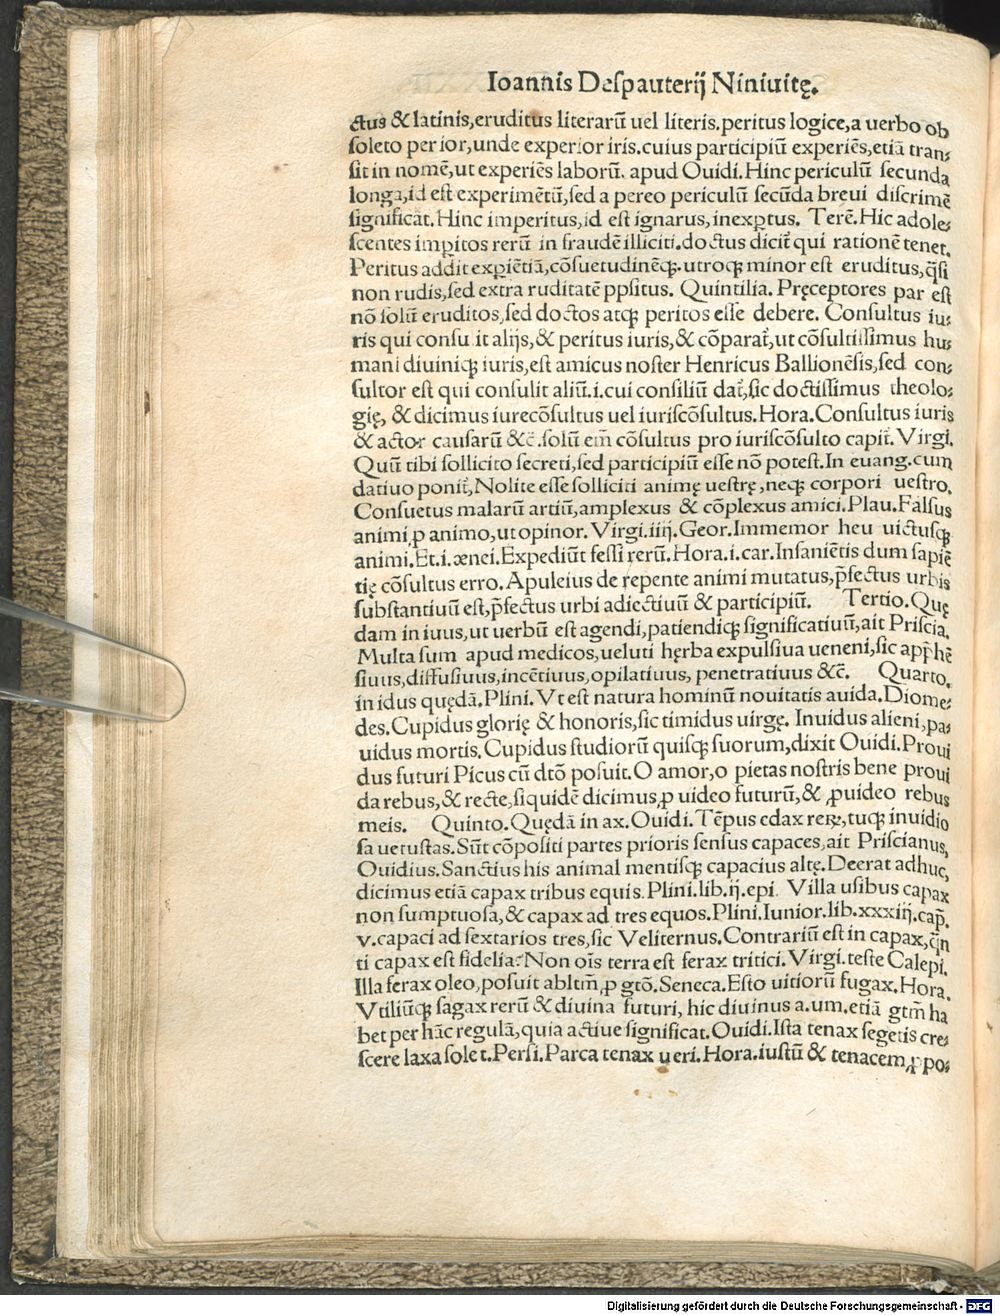 Ioannis Despauterij Niniuitę.
ctus & latinis,eruditus literarū uel literis.peritus logice,a uerbo ob
soleto perior,unde experior iris.cuius participiū experiēs,etiā tran⸗
sit in nomē,ut experiēs laborū. apud Ouidi.Hinc periculū secunda
longa,id est experimētū,sed a pereo periculū secūda breui discrimē
significat.Hinc imperitus,id est ignarus, inexꝑtus. Terē.Hic adole⸗
scentes imꝑitos rerū in fraudē illiciti.doctus dicit̃ qui rationē tenet.
Peritus addit exꝑiētiā,cōsuetudinēqꝫ.utroqꝫ minor est eruditus,q̃si
non rudis,sed extra ruditatē ꝓpsitus. Quintilia. Pręceptores par est
nō solū eruditos,sed doctos atqꝫ peritos esse debere. Consultus iu⸗
ris qui consulit alijs,& peritus iuris,& cōparat̃,ut cōsultissimus hu⸗
mani diuiniqꝫ iuris,est amicus noster Henricus Ballionēsis,sed con⸗
sultor est qui consulit aliū.i.cui consiliū dat̃,sic doctissimus theolo⸗
gię, & dicimus iurecōsultus uel iuriscōsultus.Hora.Consultus iuris
& actor causarū &c̄.solū em̄ cōsultus pro iuriscōsulto capit̃. Virgi.
Quū tibi sollicito secreti,sed participiū esse nō potest.In euang.cum
datiuo ponit̃,Nolite esse solliciti animę uestrę,neqꝫ corpori uestro.
Consuetus malarū artiū,amplexus & cōplexus amici.Plau.Falsus
animi,ꝓ animo,ut opinor. Virgi.iiij.Geor.Immemor heu uictusqꝫ
animi.Et.i.ænei.Expediūt fessi rerū.Hora.i.car.Insaniētis dum sapiē
tię cōsultus erro.Apuleius de repente animi mutatus,p̄fectus urbis
substantiuū est,p̄fectus urbi adiectiuū & participiū. Tertio.Quę
dam in iuus,ut uerbū est agendi,patiendiqꝫ significatiuū,ait Priscia.
Multa sum apud medicos,ueluti hęrba expulsiua ueneni,sic app̄hē
siuus,diffusiuus,incētiuus,opilatiuus, penetratiuus &c̄. Quarto.
in idus quędā.Plini.Vt est natura hominū nouitatis auida.Diome⸗
des.Cupidus glorię & honoris,sic timidus uirgę. Inuidus alieni,pa⸗
uidus mortis.Cupidus studiorū quisqꝫ suorum,dixit Ouidi.Proui
dus futuri Picus cū dt̄o posuit.O amor,o pietas nostris bene proui
da rebus,& recte,siquidē dicimus,ꝓ uideo futurū,& ꝓuideo rebus
meis. Quinto.Quędā in ax.Ouidi.Tēpus edax reꝝ,tuqꝫ inuidio
sa uetustas.Sūt cōpositi partes prioris sensus capaces,ait Priscianus,
Ouidius.Sanctius his animal mentisqꝫ capacius altę.Deerat adhuc,
dicimus etiā capax tribus equis.Plini.lib.ij.epi. Villa usibus capax
non sumptuosa,& capax ad tres equos.Plini.Iunior.lib.xxxiij.cap̄.
v.capaci ad sextarios tres,sic Veliternus.Contrariū est in capax,q̄n
ti capax est fidelia?Non oīs terra est ferax tritici.Virgi.teste Calepi.
Illa ferax oleo,posuit ablt̄m,ꝓ gt̄o.Seneca.Esto uitiorū fugax.Hora.
Vtiliūqꝫ sagax rerū & diuina futuri, hic diuinus a.um.etiā gt̄m ha
bet per hāc regulā,quia actiue significat.Ouidi.Ista tenax segetis cre⸗
scere laxa solet.Persi.Parca tenax ueri.Hora.iustū & tenacem,ꝓpo⸗
Digitalisierung gefördert durch die Deutsche Forschungsgemeinschaft - DFG